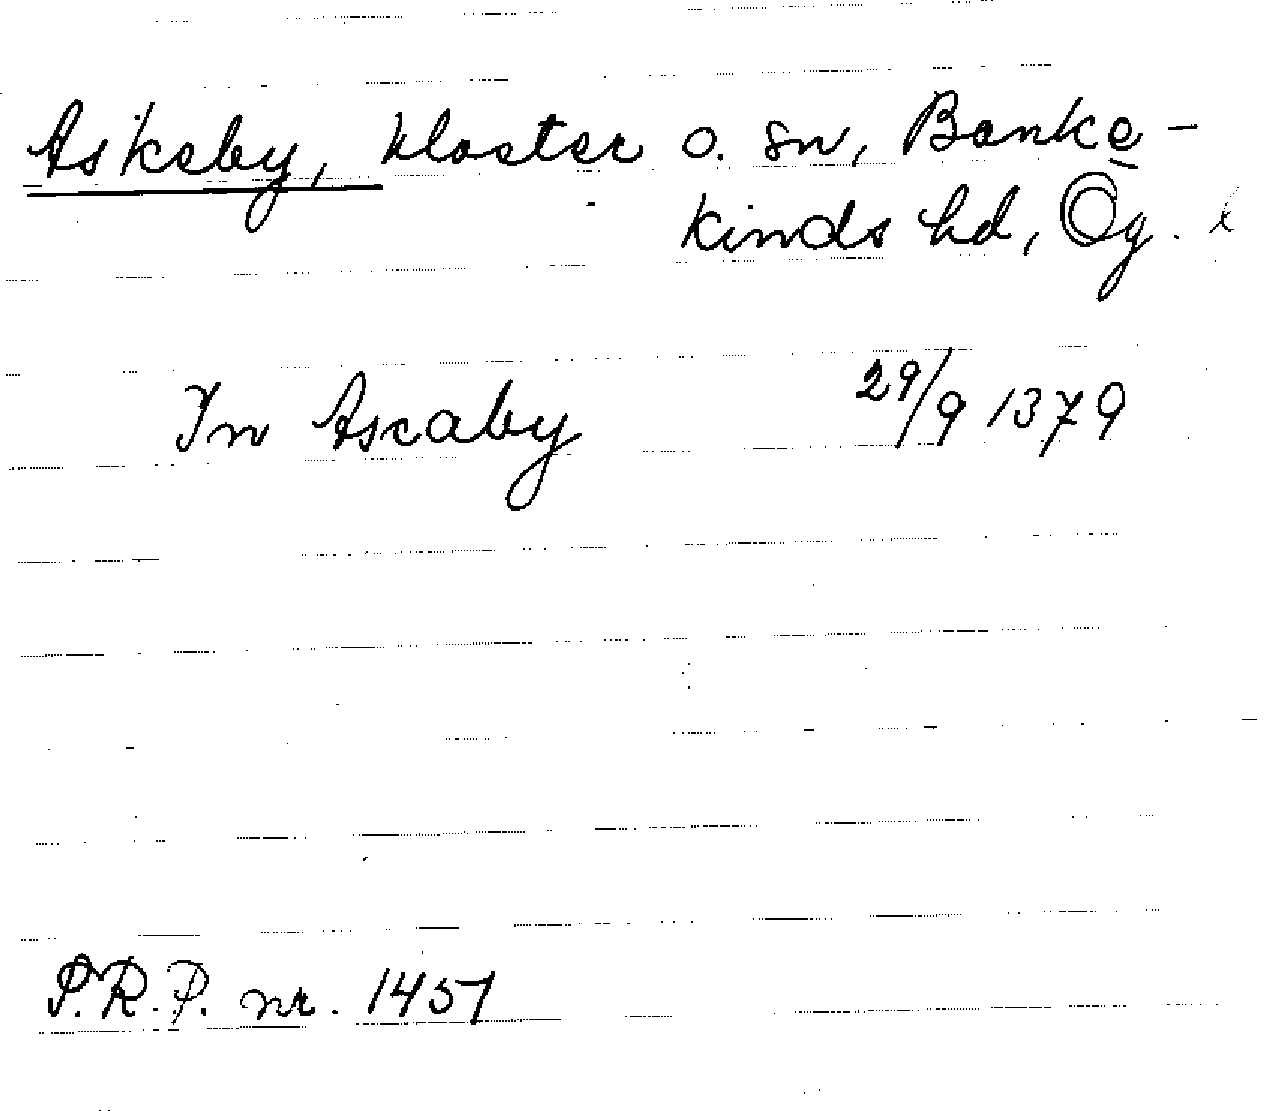 Askeby, kloster o. sn, Banke-
kinds hd, Ög.
In Ascaby 29/9 1379
P.R.P. nr. 1451